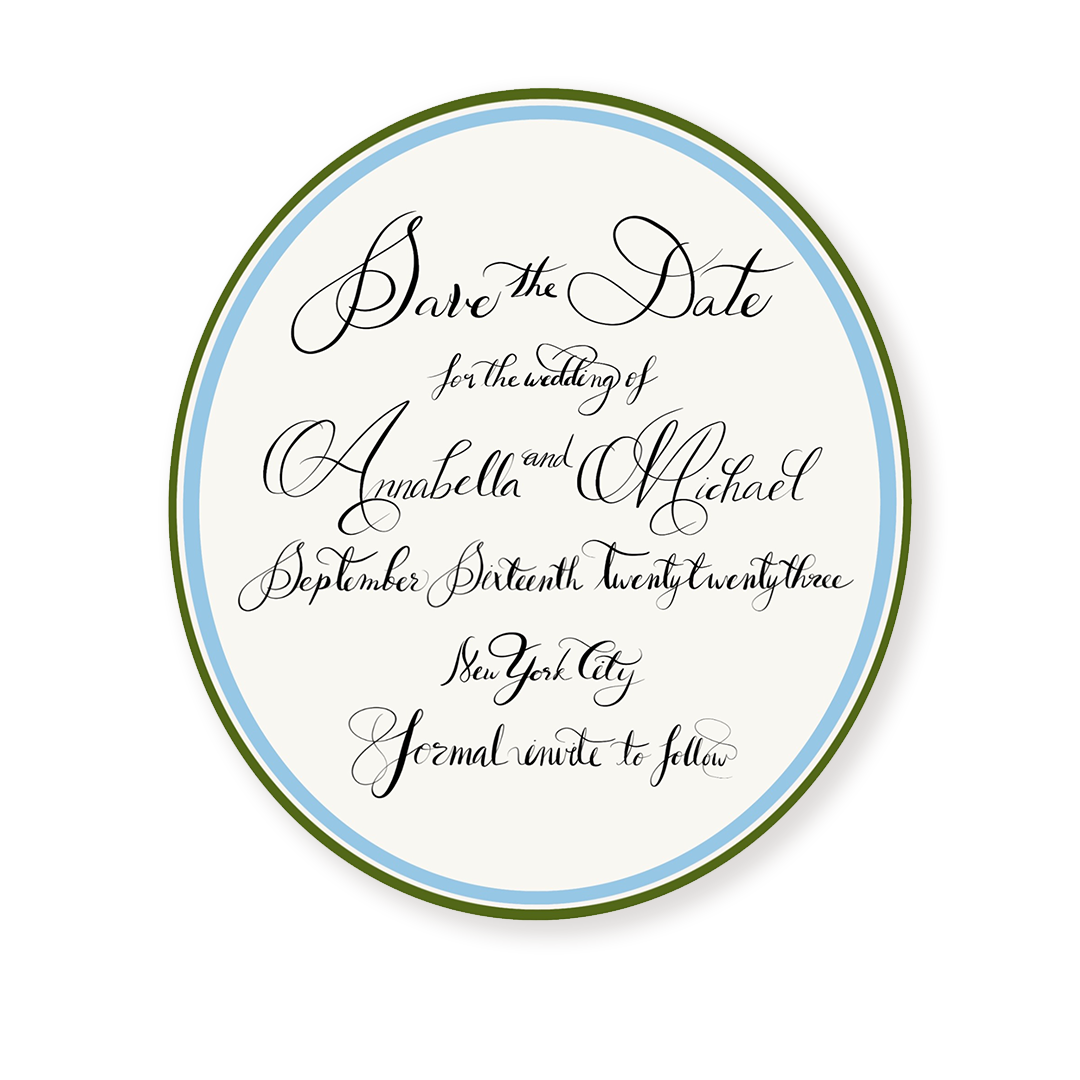 Save the Date
for the wedding of
Annabella and Michael
September Sixteenth Twenty twenty three
New York City
Formal invite to follow